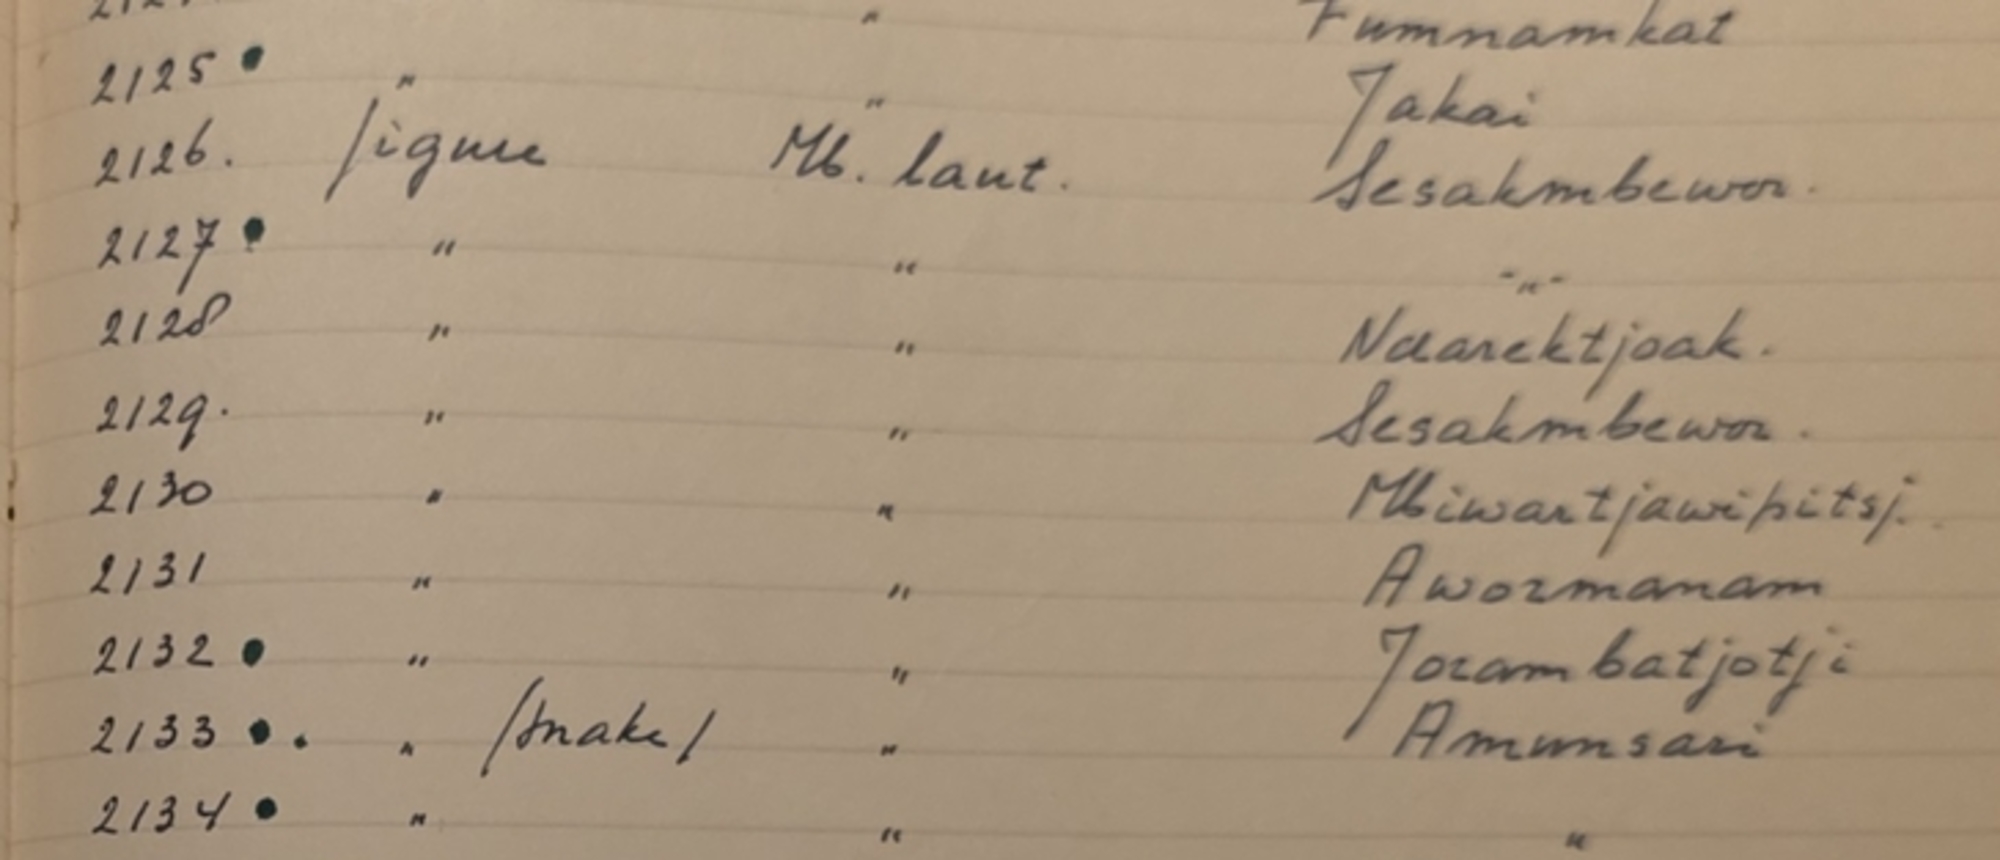 " Fumnamkat
2125 • " " Jakai
2126. figure Mb. laut. Sesakmbewor.
2127 • " " -"-
2128 " " Ndarektjoak.
2129. " " Sesakmbewor.
2130 " " Mbiwartjawipitsj.
2131 " " Awormanam
2132 • " " Jorambatjotji
2133 • . " /snake/ " Amumsari
2134 • " " "